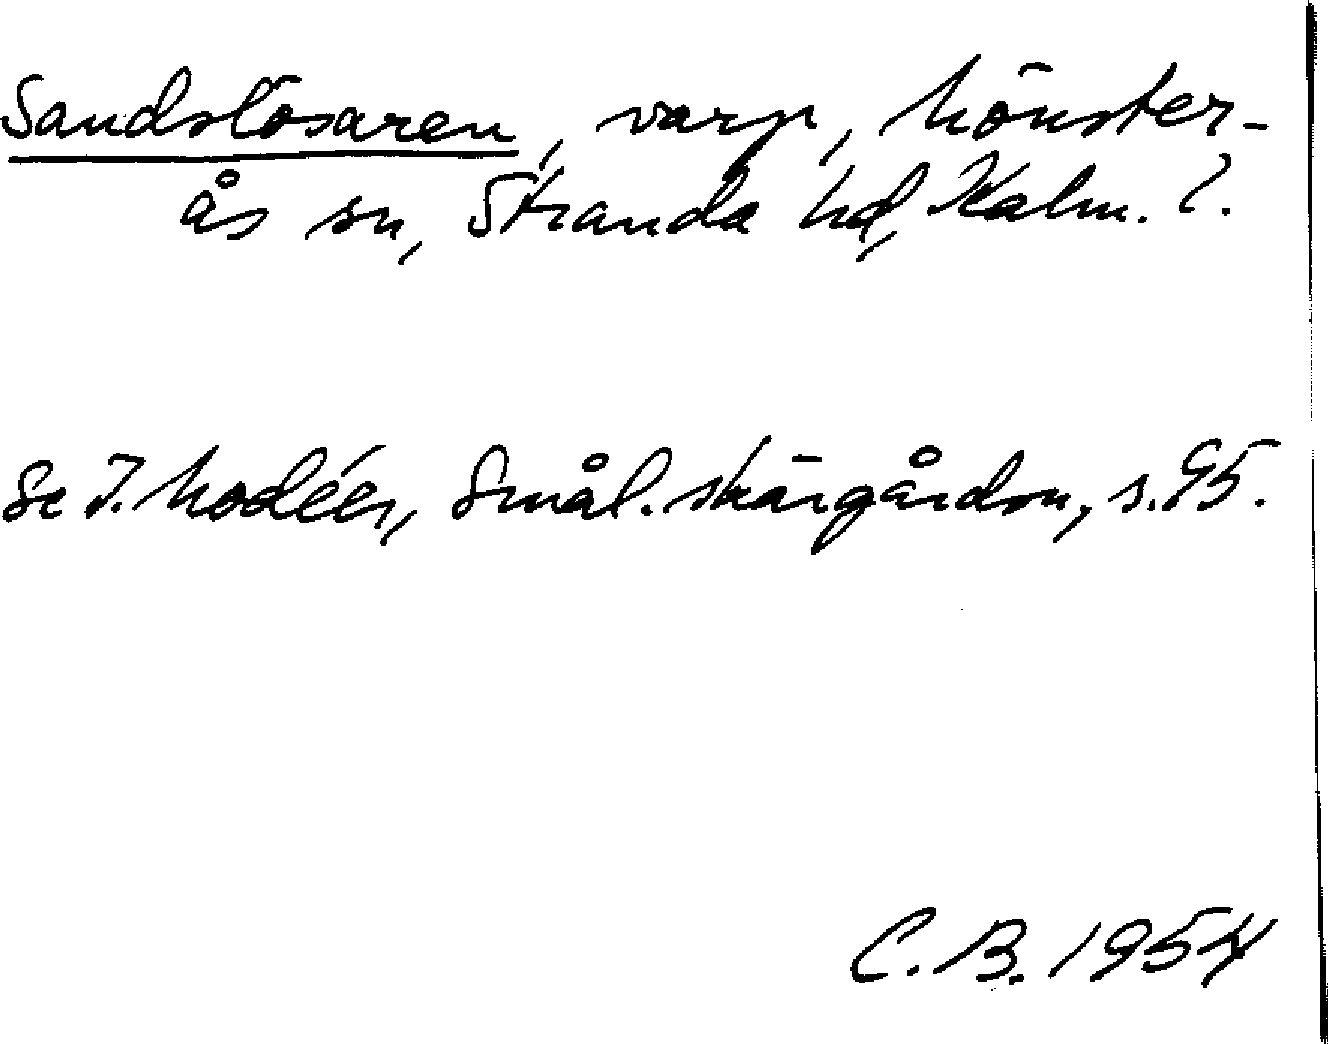 Sandslösaren, varp, Mönster-
ås sn, Stranda hd, Kalm. l.
Se I. Modéer, Smål. skärgårdsn, s. 95.
C. B. 1954